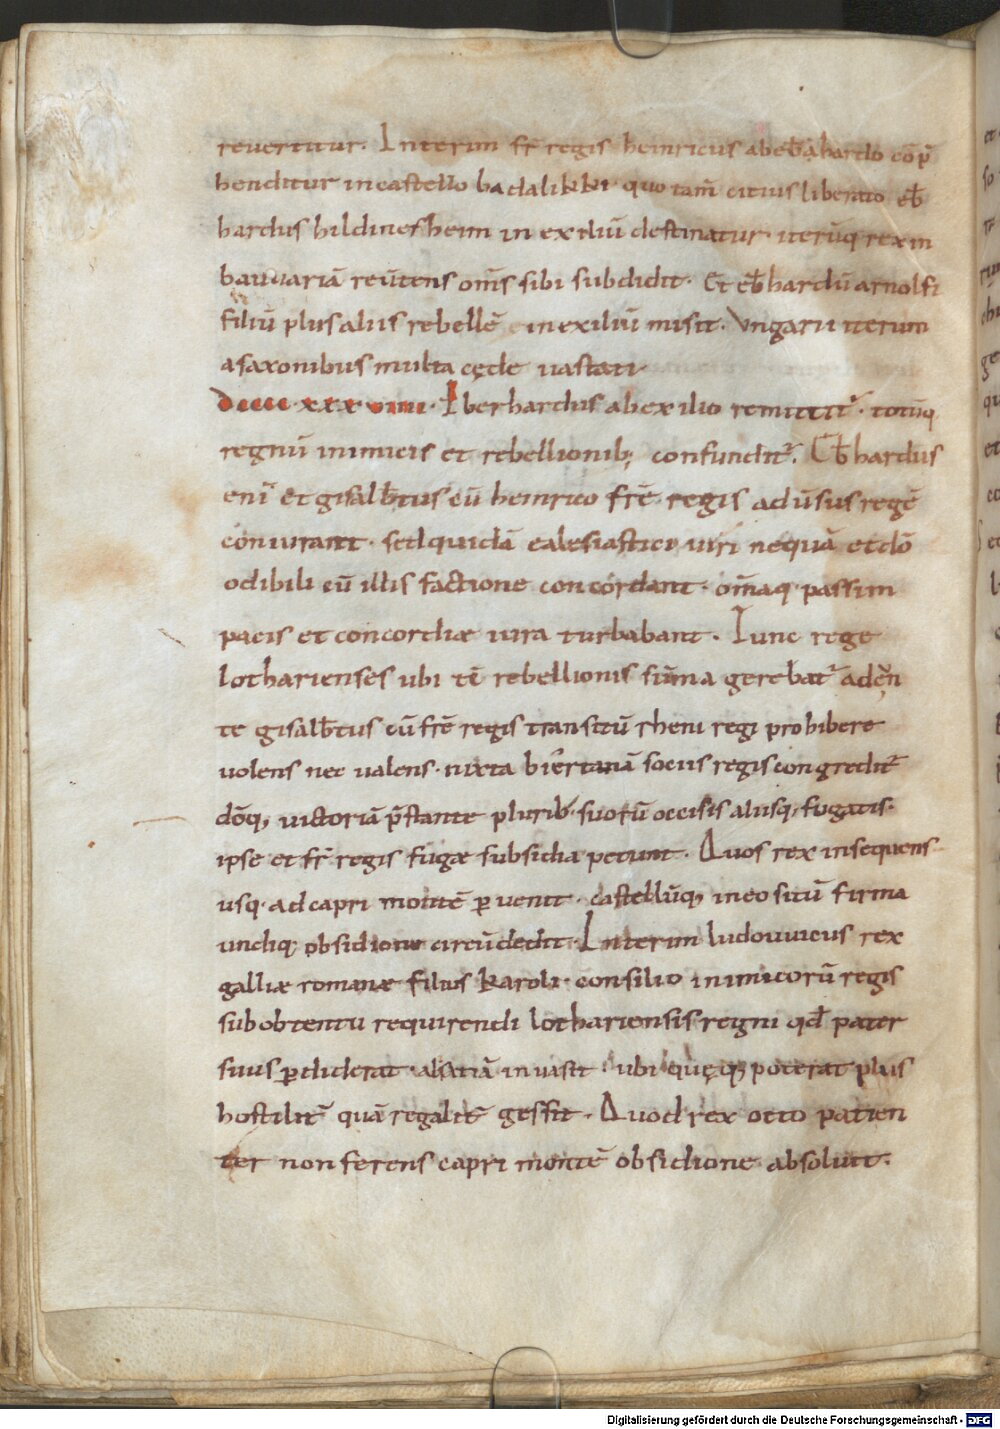 reuertitur. Interim fr̄ regis heinricus ab eb̄ahardo cōp̄
henditur in castello badalikki· quo tam̄ citius liberato eb̄
hardus hildinesheim in exiliū destinatur· iterūq; rex in
bauuariā reūtens om̄s sibi subdidit· Et eb̄hardū arnolfi
filiū plus aliis rebellē in exiliū misit. Vngarii iterum
a saxonibus multa cęde uastati·
dcccc·xxx·viiii· Iberhardus ab exilio remittit᷑· totūq;
regnū inimicis et rebellionib; confundit᷑. Eb̄hardus
eni᷑ et gisalb̄tus cū heinrico fr̄e regis aduersus regē
coniurant· sed quidā ęclesiastici uiri nequā et dō
odibili cū illis factione concordant· om̄iaq; passim
pacis et concordiæ iura turbabant. Tunc rege
lotharienses ubi tc̄ rebellionis sūma gerebat᷑ adeūn
te gisalb̄tus cū fr̄e regis transitū rheni regi prohibere
uolens nec ualens· iuxta biertanā sociis regis congredit᷑
dōq; uictoriā p̄stante plurib; suorū occisis aliisq; fugatis·
ipse et fr̄ regis fugæ subsidia petunt. Quos rex insequens
usq; ad capri montē ꝑuenit· castellūq; in eo sitū firma
undiq; obsidione circūdedit· Interim ludouuicus rex
galliæ romanæ filius karoli· consilio inimicorū regis
sub obtentu requirendi lothariensis regni qd̄ pater
suus ꝑdiderat· alsatiā inuasit· ubi quęq; poterat plus
hostilit᷑ quā regalit᷑ gessit. Quod rex otto patien
ter non ferens capri montē obsidione absoluit.
Digitalisierung gefördert durch die Deutsche Forschungsgemeinschaft - DFG